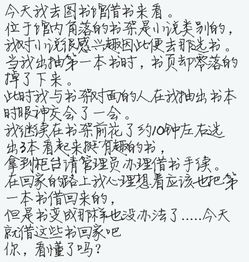 今天我去图书馆借书来看。
位于馆内角落的书架是小说类别的,
我对小说很感兴趣因此便去那选书。
当我出抽第一本书时,书页却零落的
掉了下来。
此时我与书架对面的人在我抽出书本
时眼神交会了一会。
我继续在书架前花了约10钟左右选
出3本看起来挺有趣的书,
拿到柜台请管理员办理借书手续。
在回家的路上我心理想着应该也把第
一本书借回来的,
但是书变成那样也没办法了.....今天
就借这些书回家吧
你,看懂了吗?